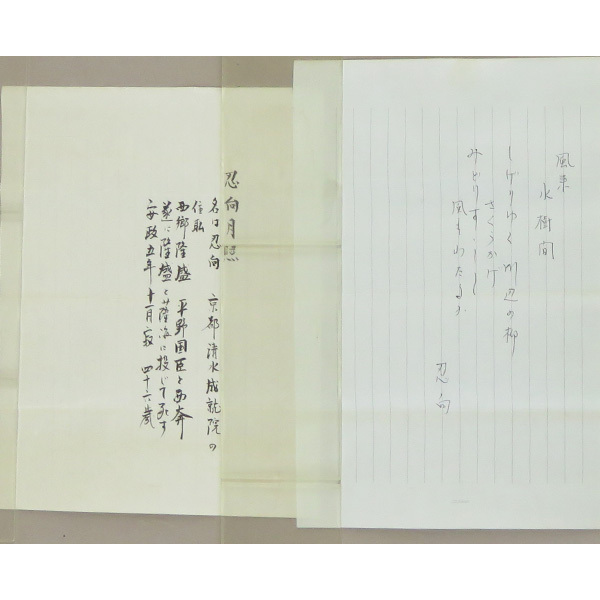 風来
水樹間
しげりゆく川辺の柳
みどりすゞしく
風もわたるか
忍向
忍向月照
名は忍向 京都清水成就院の
住職
西郷隆盛 平野国臣と西奔
遂に隆盛と薩海に投じて死す
安政五年十一月寂 四十六歳